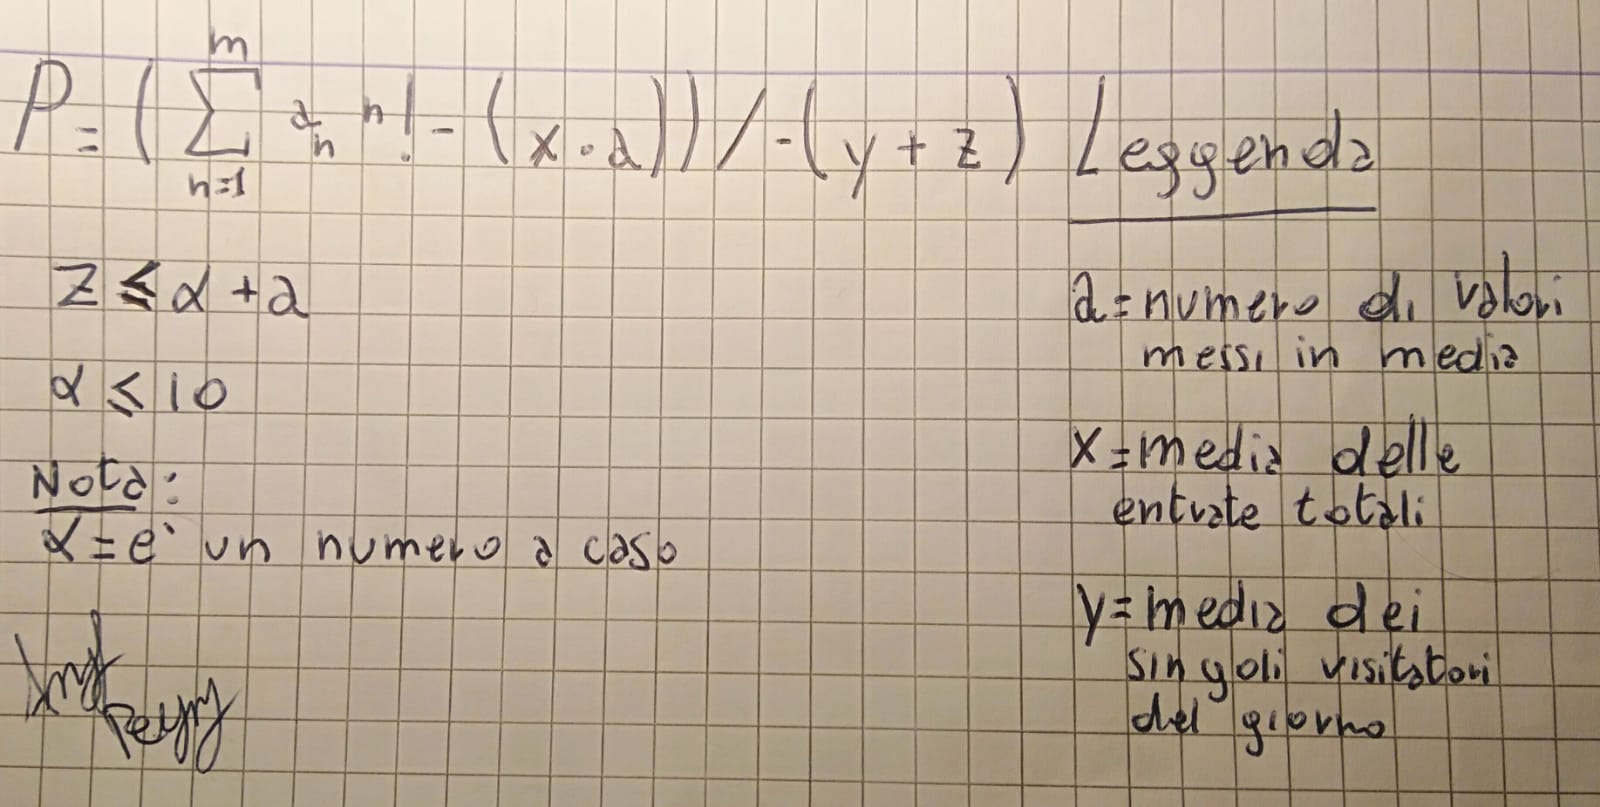 P = ( m Σ n=1 a_n n! - (x · a)) / -(y + z)
Leggenda
z ≤ α + a
α ≤ 10
Nota:
α = e' un numero a caso
a = numero di valori
messi in media
x = media delle
entrate totali
y = media dei
singoli visitatori
del giorno